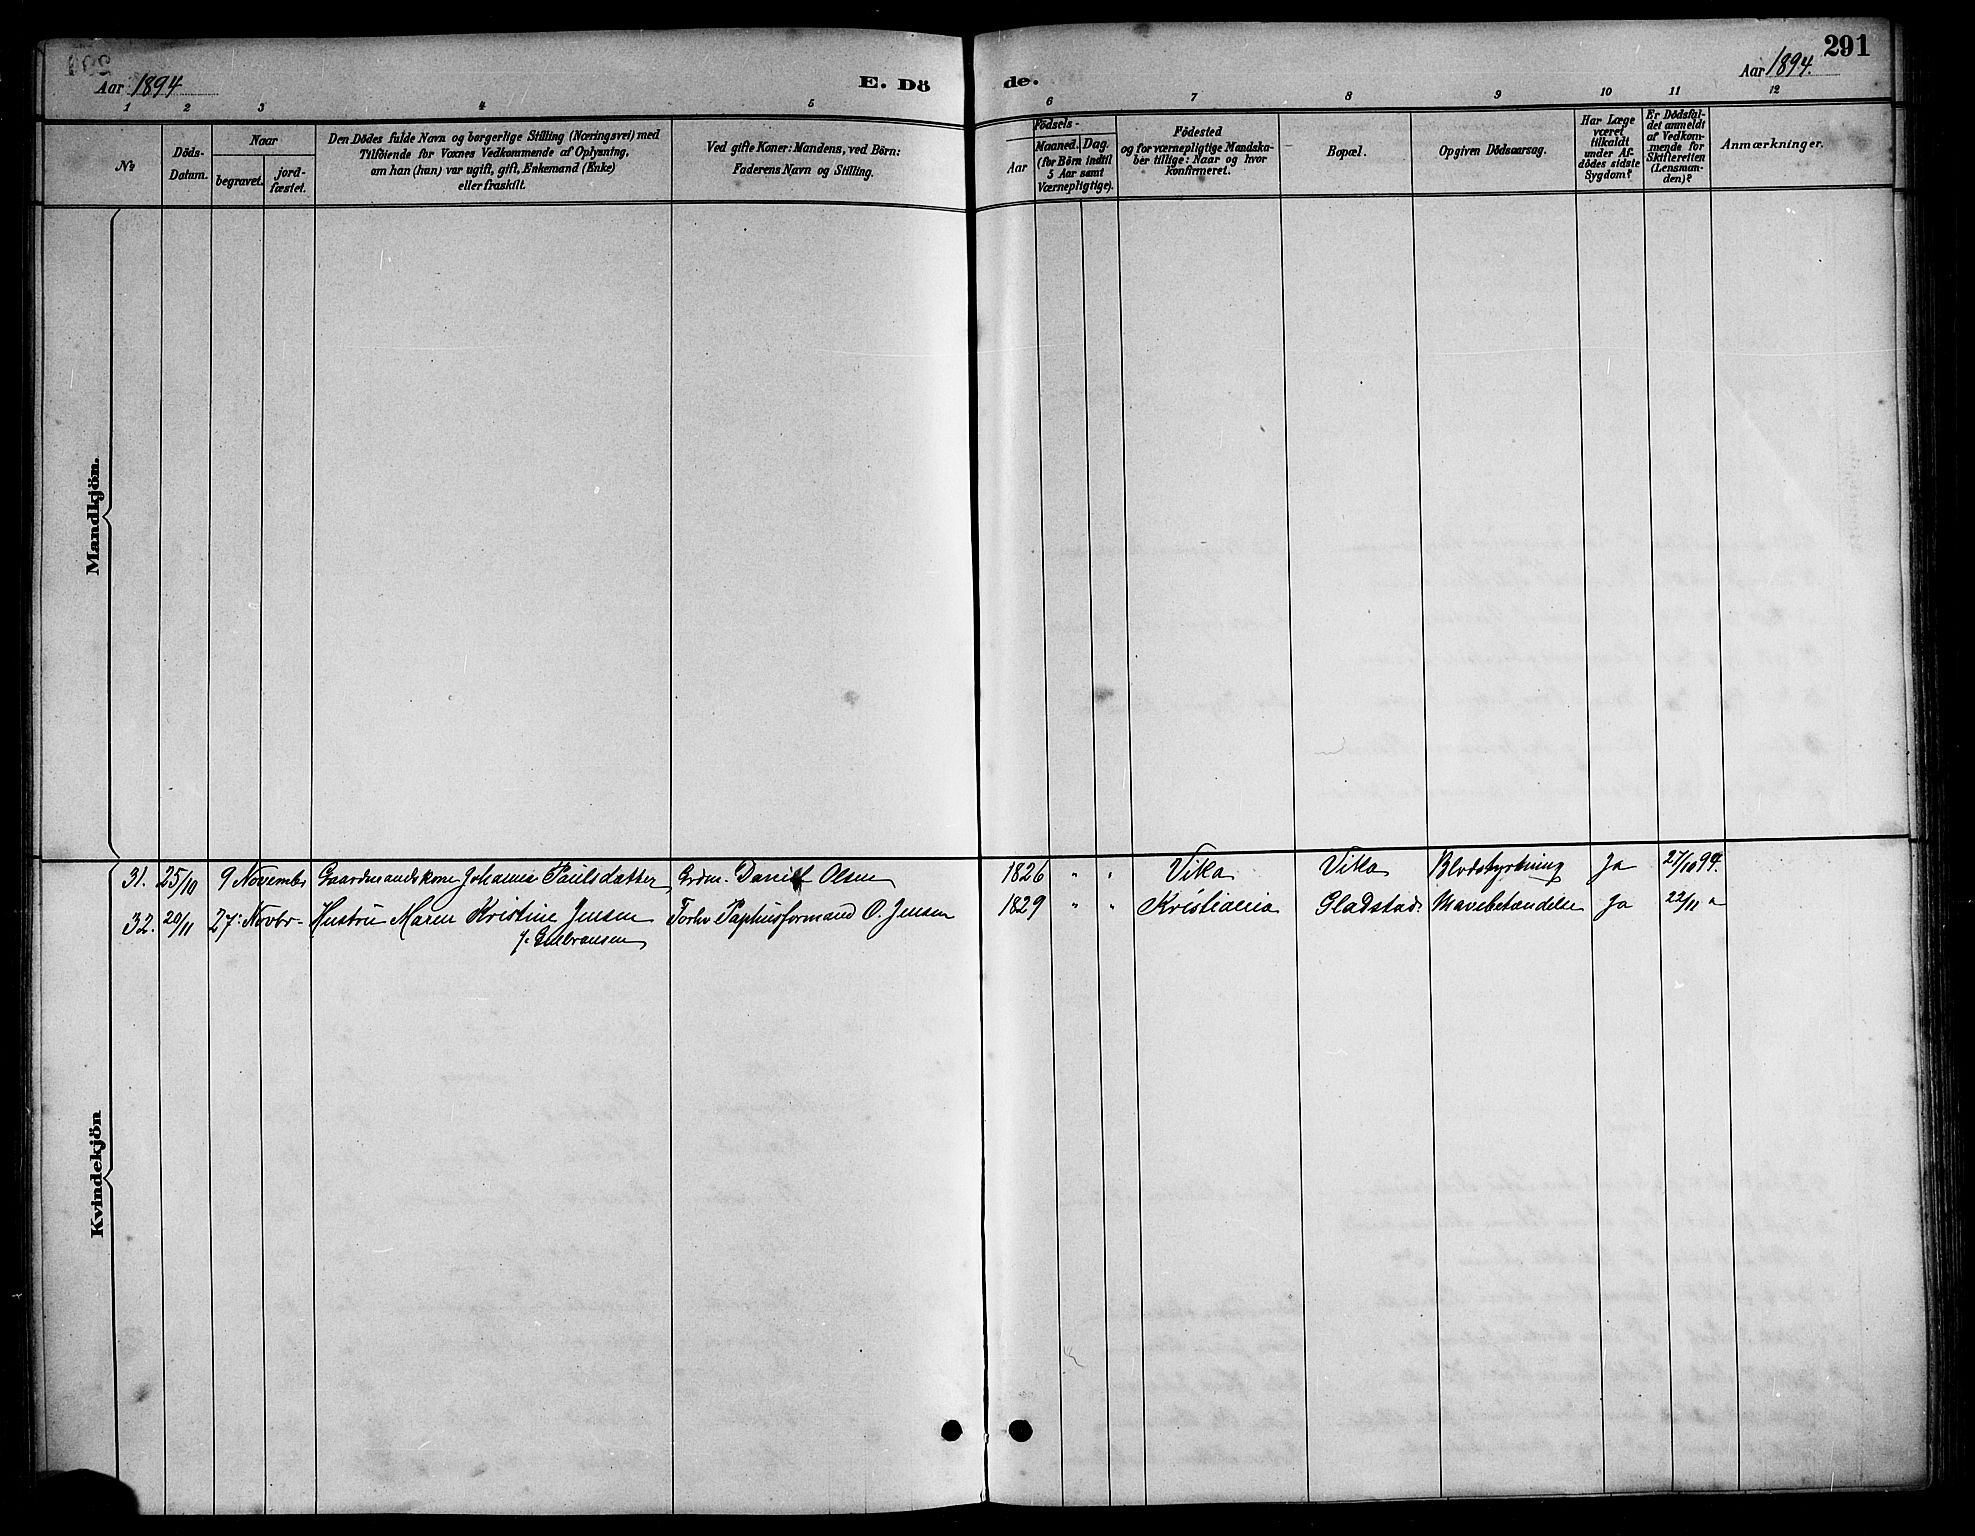 291
Aar 1894
E. Dö de.
Aar 1894.
1 2 3 4 5 6 7 8 9 10 11 12
No
Döds-
Datum.
Naar
begravet.
jord-
fæstet.
Den Dödes fulde Navn og borgerlige Stilling (Næringsvei) med
Tilföiende for Voxnes Vedkommende af Oplysning,
om han (hun) var ugift, gift, Enkemand (Enke)
eller fraskilt.
Ved gifte Koner: Mandens, ved Börn:
Faderens Navn og Stilling.
Födsels-
Aar
Maaned. Dag.
(for Börn indtil
5 Aar samt
Værnepligtige).
Födested
og for værnepligtige Mandska-
ber tillige: Naar og hvor
konfirmeret.
Bopæl.
Opgiven Dödsaarsag.
Har Læge
været
tilkaldt
under Af-
dödes sidste
Sygdom?
Er Dödsfal-
det anmeldt
af Vedkom-
mende for
Skifteretten
(Lensman-
den)?
Anmærkninger.
Mandkjön.
Kvindekjön
31. 25/10 9 Novembr Gaardmandskone Johanna Paulsdatter Grdm. Daniel Olsen 1826 " " Vika Vika Blodstyrtning Ja 27/10 94.
32. 20/11 27. Novbr- Hustru Maren Kristine Jensen Forhv O. Jensen 1829 " " Kristiania Gladstad Mavebetændelse Ja 22/11 "
f. Gulbransen